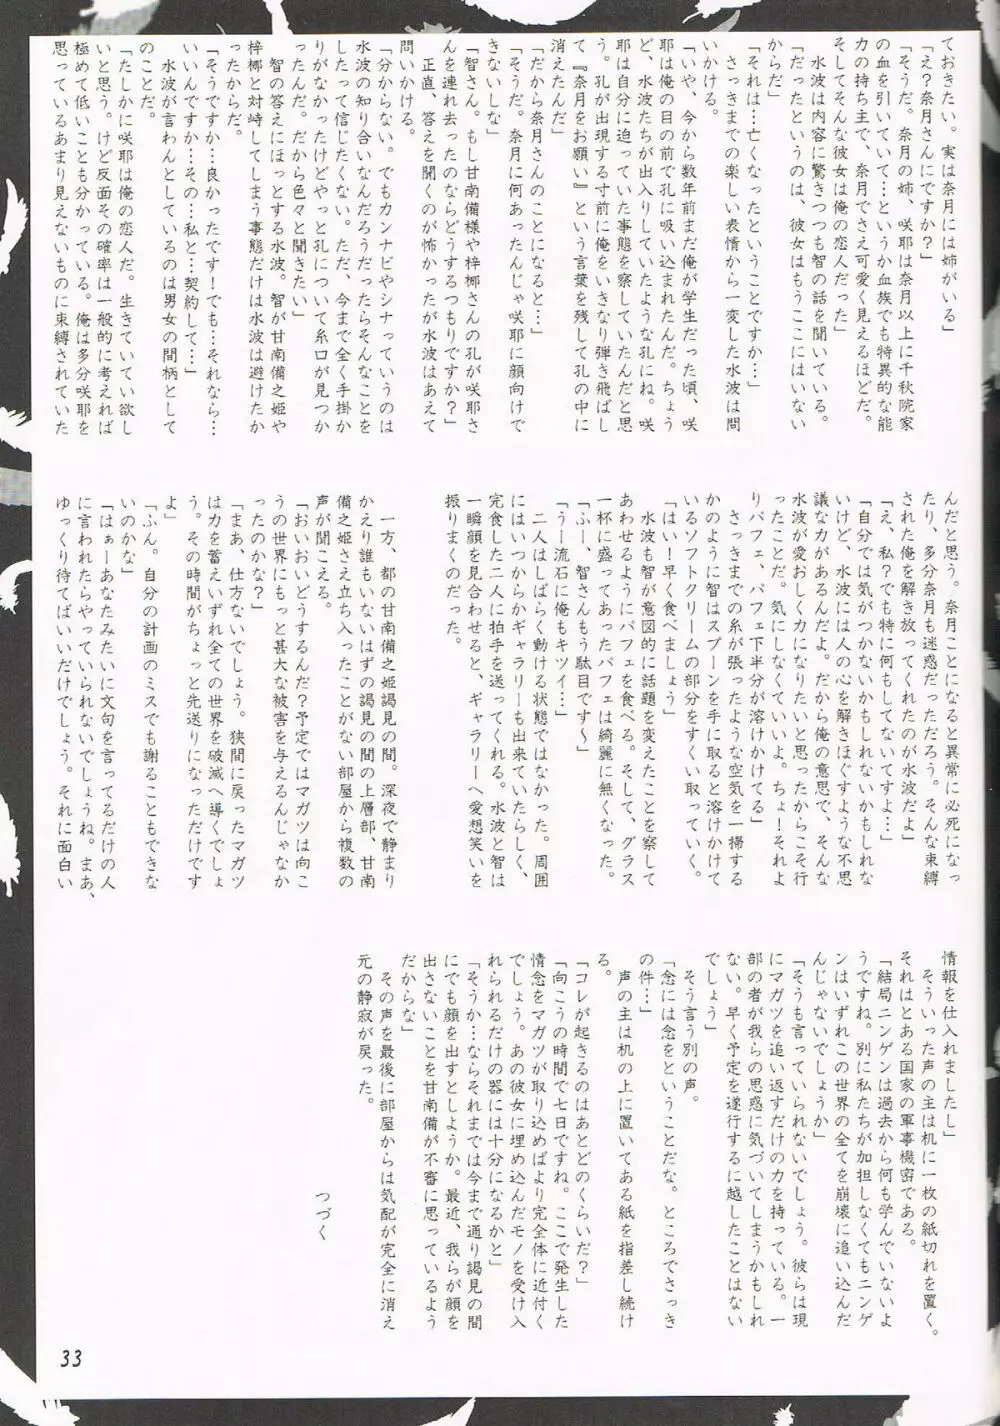 ておきたい。実は奈月には姉がいる」
「え?奈月さんにですか?」
「そうだ。奈月の姉、咲耶は奈月以上に千秋院家
の血を引いていて…というか血族でも特異的な能
力の持ち主で、奈月でさえ可愛く見えるほどだ。
そしてそんな彼女は俺の恋人だった」
　水波は内容に驚きつつも智の話を聞いている。
「だったというのは、彼女はもうここにはいない
からだ」
「それは…亡くなったということですか…」
　さっきまでの楽しい表情から一変した水波は問
いかける。
「いや、今から数年前まだ俺が学生だった頃、咲
耶は俺の目の前で孔に吸い込まれたんだ。ちょう
ど、水波たちが出入りしていたような孔にね。咲
耶は自分に迫っていた事態を察していたんだと思
う。孔が出現する寸前に俺をいきなり弾き飛ばし
て『奈月をお願い』という言葉を残して孔の中に
消えたんだ」
「だから奈月さんのことになると…」
「そうだ。奈月に何あったんじゃ咲耶に顔向けで
きないしな」
「智さん。もし甘南備様や梓梛さんの孔が咲耶さ
んを連れ去ったのならどうするつもりですか?」
　正直、答えを聞くのが怖かったが水波はあえて
問いかける。
「分からない。でもカンナビやシナっていうのは
水波の知り合いなんだろうだったらそんなことを
したって信じたくない。ただ、今まで全く手掛か
りがなかったけどやっと孔について糸口が見つか
ったんだ。だから色々と聞きたい」
　智の答えにほっとする水波。智が甘南備之姫や
梓梛と対峙してしまう事態だけは水波は避けたか
ったからだ。
「そうですか…良かったです!でも…それなら…
いいんですか…その…私と…契約して…」
　水波が言わんとしているのは男女の間柄として
のことだ。
「たしかに咲耶は俺の恋人だ。生きていてい欲し
いと思う。けど反面その確率は一般的に考えれば
極めて低いことも分かっている。俺は多分咲耶を
思っているあまり見えないものに束縛されていた
んだと思う。奈月ことになると異常に必死になっ
たり、多分奈月も迷惑だっただろう。そんな束縛
された俺を解き放ってくれたのが水波だよ」
「え、私?でも特に何もしてないですよ…」
「自分では気がつかないかもしれないかもしれな
いけど、水波には人の心を解きほぐすような不思
議な力があるんだよ。だから俺の意思で、そんな
水波が愛おしく力になりたいと思ったからこそ行
ったことだ。気にしなくていいよ。ちょ!それよ
りパフェ、パフェ下半分が溶けかけてる」
　さっきまでの糸が張ったような空気を一掃する
かのように智はスプーンを手に取ると溶けかけて
いるソフトクリームの部分をすくい取っていく。
「はい!早く食べましょう」
　水波も智が意図的に話題を変えたことを察して
あわせるようにパフェを食べる。そして、グラス
一杯に盛ってあったパフェは綺麗に無くなった。
「ふー、智さんもう駄目です〜」
「うー流石に俺もキツイ…」
　二人はしばらく動ける状態ではなかった。周囲
にはいつからかギャラリーも出来ていたらしく、
完食した二人に拍手を送ってくれる。水波と智は
一瞬顔を見合わせると、ギャラリーへ愛想笑いを
振りまくのだった。
　一方、都の甘南備之姫謁見の間。深夜で静まり
かえり誰もいないはずの謁見の間の上層部、甘南
備之姫さえ立ち入ったことがない部屋から複数の
声が聞こえる。
「おいおいどうするんだ?予定ではマガツは向こ
うの世界にもっと甚大な被害を与えるんじゃなか
ったのかな?」
「まあ、仕方ないでしょう。狭間に戻ったマガツ
は力を蓄えいずれ全ての世界を破滅へ導くでしょ
う。その時間がちょっと先送りになっただけです
よ」
「ふん。自分の計画のミスでも謝ることもできな
いのかな」
「はぁーあなたみたいに文句を言ってるだけの人
に言われたらやっていられないでしょうね。まあ、
ゆっくり待てばいいだけでしょう。それに面白い
情報を仕入れましたし」
　そういった声の主は机に一枚の紙切れを置く。
それはとある国家の軍事機密である。
「結局ニンゲンは過去から何も学んでいないよ
うですね。別に私たちが加担しなくてもニンゲ
ンはいずれこの世界の全てを崩壊に追い込んだ
んじゃないでしょうか」
「そうも言っていられないでしょう。彼らは現
にマガツを追い返すだけの力を持っている。一
部の者が我らの思惑に気づいてしまうかもしれ
ない。早く予定を遂行するに越したことはない
でしょう」
　そう言う別の声。
「念には念をということだな。ところでさっき
の件…」
　声の主は机の上に置いてある紙を指差し続け
る。
「コレが起きるのはあとどのくらいだ?」
「向こうの時間で七日ですね。ここで発生した
情念をマガツが取り込めばより完全体に近付く
でしょう。あの彼女に埋め込んだモノを受け入
れられるだけの器には十分になるかと」
「そうか…ならそれまでは今まで通り謁見の間
にでも顔を出すとしようか。最近、我らが顔を
出さないことを甘南備が不審に思っているよう
だからな」
　その声を最後に部屋からは気配が完全に消え
元の静寂が戻った。
つづく
33